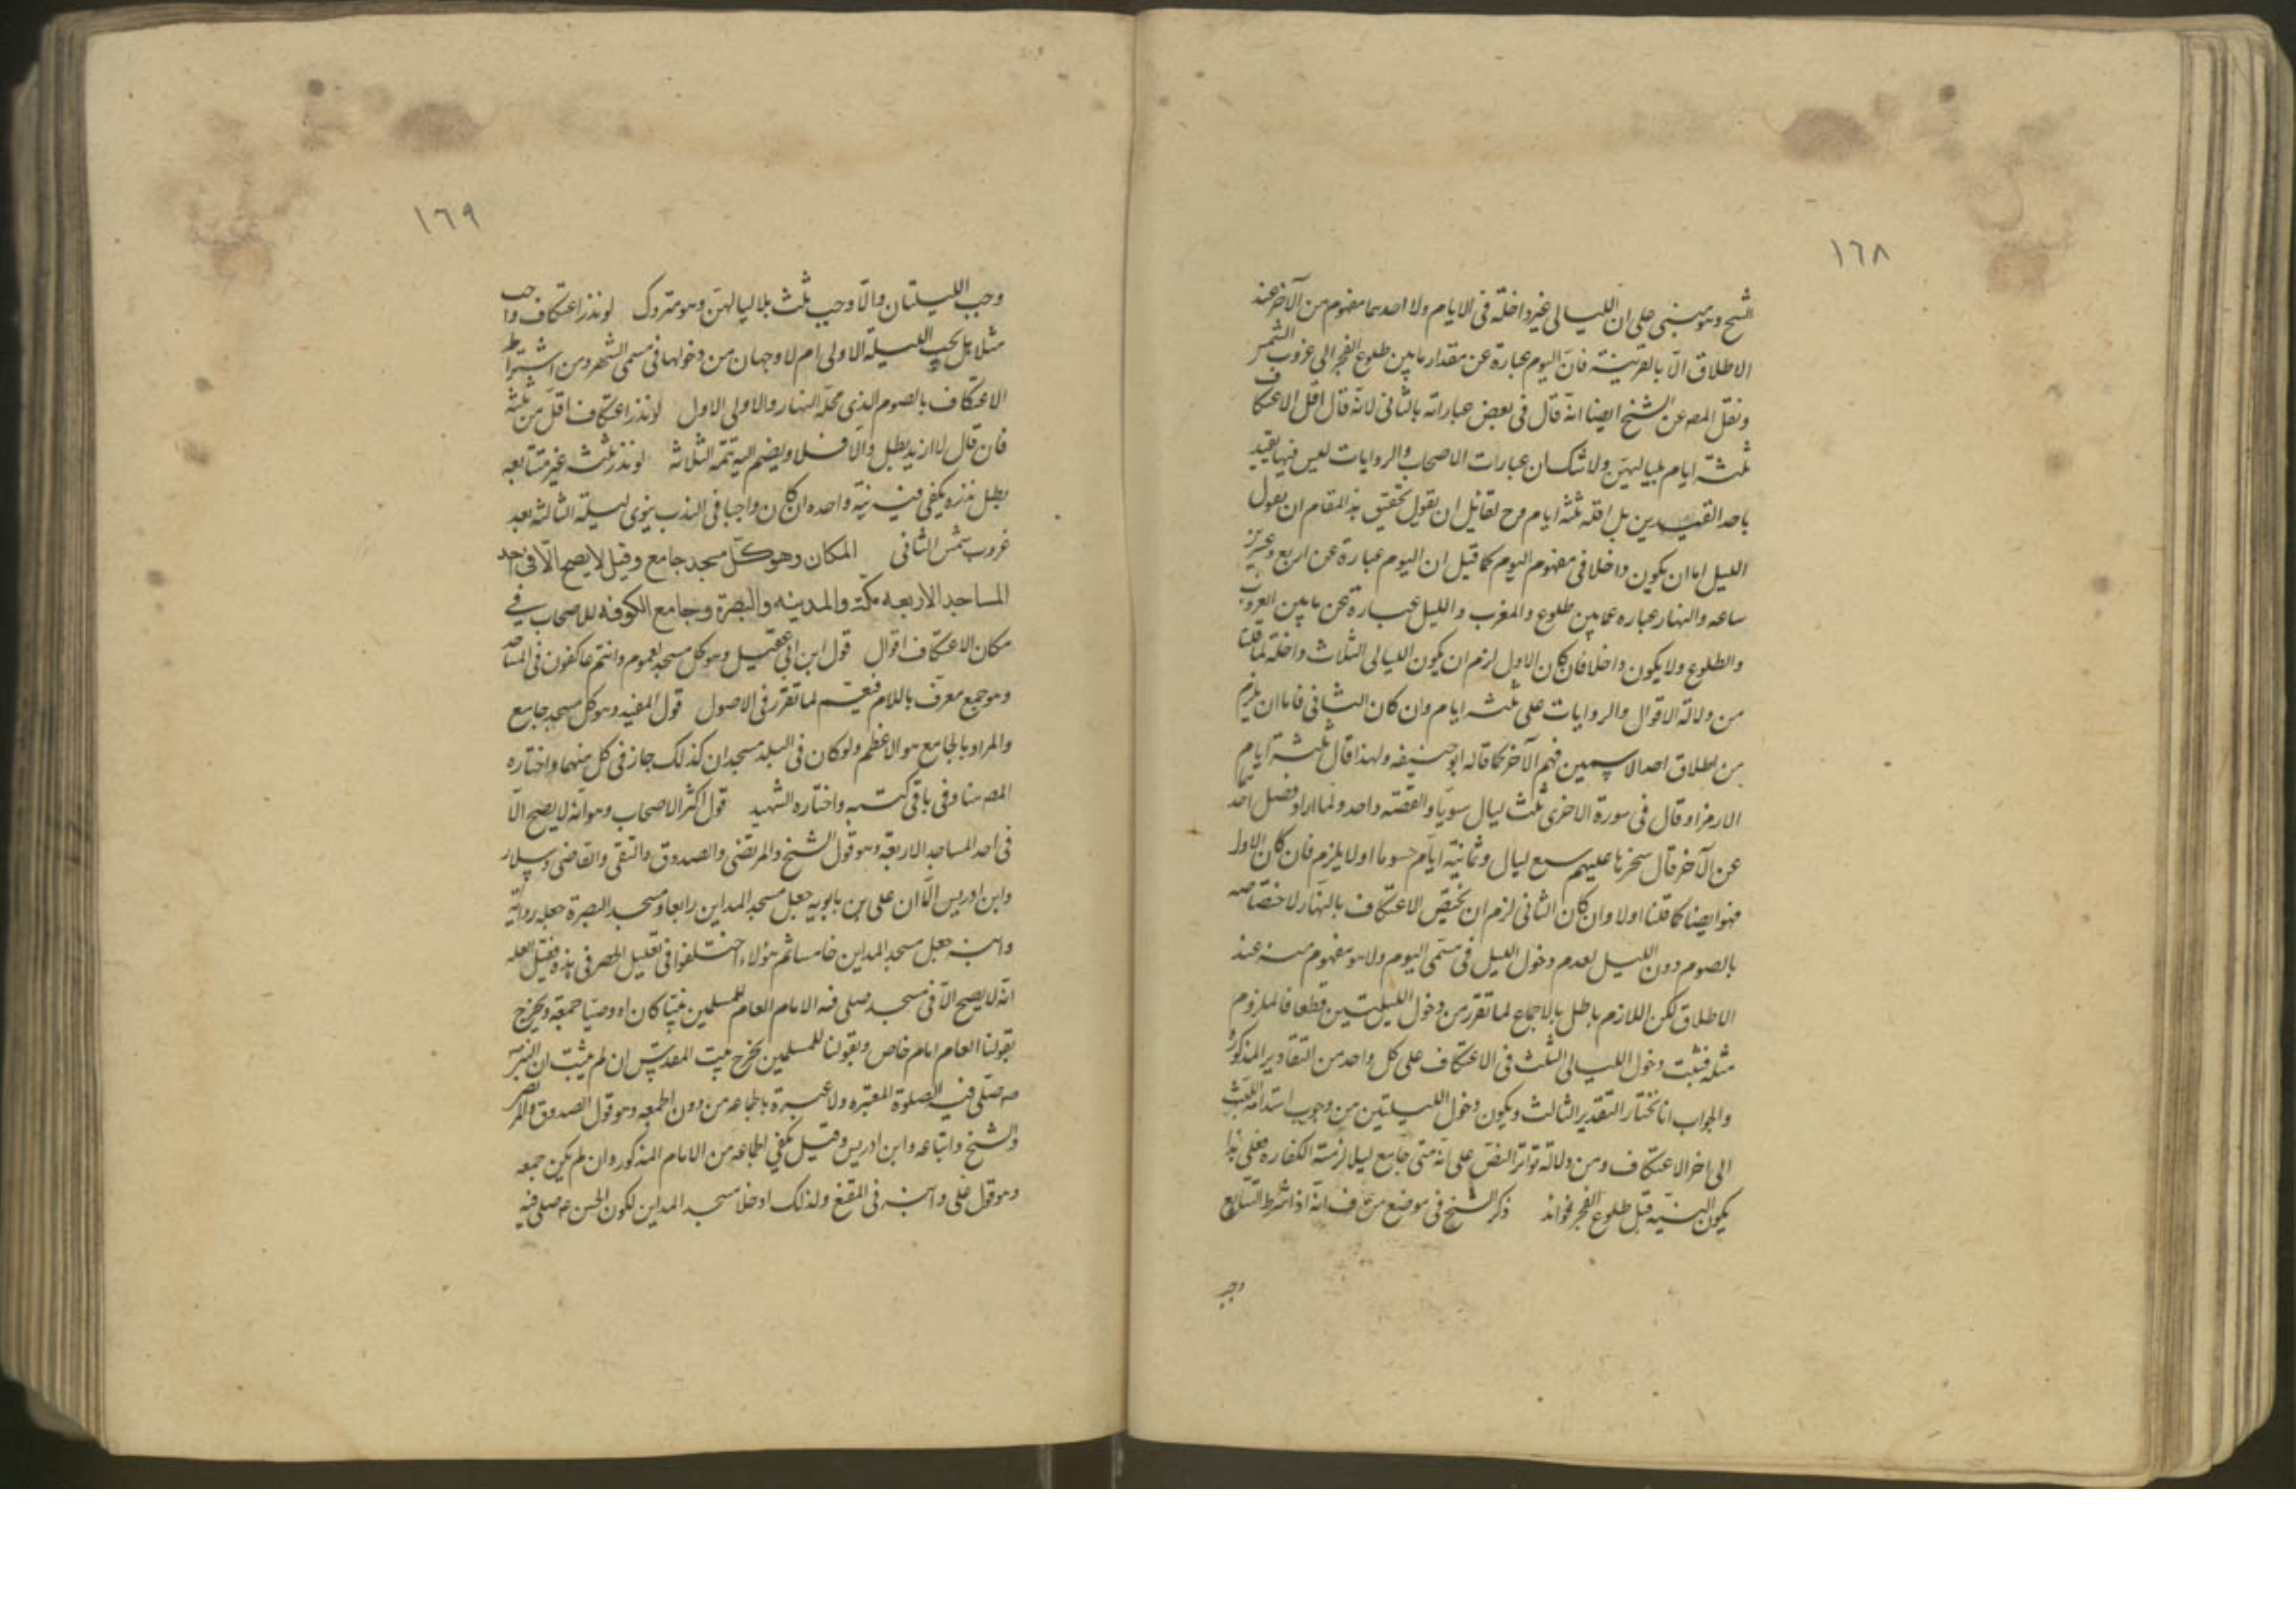 ١٦٨
الشيخ وهو مبنى على ان الليالى غير داخلة فى الايام ولا احدهما مفهوم من الآخر عند
الاطلاق الا بالقرينة فان اليوم عبارة عن مقدار ما بين طلوع الفجر الى غروب الشمس
ونقل المصه عن الشيخ ايضا انه قال فى بعض عباراته بالثانى لانه قال اقل الاعتكاف
ثلثة ايام بلياليهن ولا شك ان عبارات الاصحاب والروايات ليس فيها تقييد
باحد القيدين بل اقله ثلثه ايام وح لقائل ان يقول تحقيق هذ المقام ان يقول
الليل اما ان يكون داخلا فى مفهوم اليوم كما قيل ان اليوم عبارة عن اربع وعشرين
ساعه والنهار عباره عما بين طلوع والمغرب والليل عبارة عن ما بين الغروب
والطلوع ولا يكون داخلا فان كان الاول لزم ان يكون الليالى الثلاث داخلة لما قلنا
من دلالة الاقوال والروايات على ثلثه ايام وان كان الثانى فاما ان يلزم
من اطلاق احد الاسمين فهم الآخر كما قاله ابو حنيفه ولهذا قال ثلثة ايام
الا رمزا وقال فى سورة الاخرى ثلث ليال سويا والقصته واحد ولما اراد فصل احدهما
عن الآخر قال سخرها عليهم سبع ليال وثمانية ايام حسوما اولا يلزم فان كان الاول
فهو ايضا كما قلنا اولا وان كان الثانى لزم ان يختص الاعتكاف بالنهار لاختصاصه
بالصوم دون الليل لعدم دخول الليل فى مسمى اليوم ولا هو مفهوم منه عند
الاطلاق لكن اللازم باطل بالاجماع لما تقرر من دخول الليلتين قطعا فالملزوم
مثله فثبت دخول الليالى الثلث فى الاعتكاف على كل واحد من التقادير المذكوره
والجواب انا نختار التقدير الثالث ويكون دخول الليلتين من وجوب استدامه اللبث
الى اخر الاعتكاف ومن دلالة تواتر النص على انه متى جامع ليلا لزمته الكفاره فعلى هذا
يكون النية قبل طلوع الفجر فوائد ذكر الشيخ فى موضع من ف انه اذا شرط التتابع
وجب
١٦٩
وجب الليلتان والا وجب ثلث بلا لياليهن وهو متروك لو نذر اعتكاف واجب
مثلا هل يجب الليلة الاولى ام لا وجهان من دخولها فى مسمى الشهر ومن اشتراط
الاعتكاف بالصوم الذى محله النهار والاولى الاول لو نذر اعتكاف اقل من ثلثة
فان قال لا ازيد يطبل والا فلا ويضم اليه تتمه الثلاثه لو نذر ثلثه غير متتابعه
بطل نذره يكفى فيه نية واحده ان كان واجبا فى الندب ينوى ليلة الثالثه بعد
غروب شمس الثانى المكان وهو كل مسجد جامع وقيل لا يصح الا فى احد
المساجد الاربعه مكة والمدينه والبصرة وجامع الكوفه للاصحاب فى
مكان الاعتكاف اقوال قول ابن ابى عقيل وهو كل مسجد لعموم وانتم عاكفون فى المساجد
وهو جمع معرف باللام فيعم لما تقرر فى الاصول قول المفيد وهو كل مسجد جامع
والمراد بالجامع هو الاعظم ولو كان فى البلد مسجدان كذلك جاز فى كل منهما واختاره
المصه هنا وفى باقى كتبه واختاره الشهيد قول اكثر الاصحاب وهو انه لا يصح الا
فى احد المساجد الاربعة وهو قول الشيخ والمرتضى والصدوق والتقى والقاضى وسلار
وابن ادريس الا ان على بن بابويه جعل مسجد المداين رابعا ومسجد البصرة جعله رواية
وابنه جعل مسجد المداين خامسا ثم هؤلاء اختلفوا فى تعليل الحصر فى هذه فقيل العله
انه لا يصح الا فى مسجد صلى فيه الامام العام للمسلمين نبيا كان او وصيا جمعة ويخرج
بقولنا العام امام خاص وبقولنا للمسلمين يخرج بيت المقدس ان لم يثبت ان النبى ص
صلى فيه الصلوة المعتبره ولا عبرة بالجماعه من دون الجمعه وهو قول الصدوق والمرتضى
والشيخ واتباعه وابن ادريس وقيل يكفى الجماعه من الامام المذكور وان لم يكن جمعه
وهو قول على وابنه فى المقنع ولذلك ادخلا مسجد المداين لكون الحسن ع صلى فيه